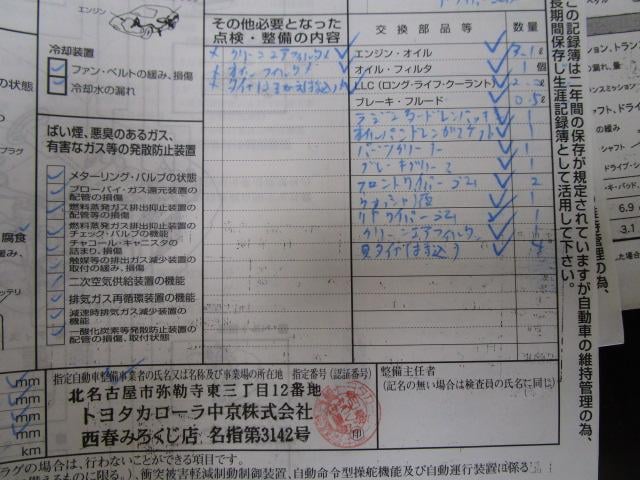 エンジン
冷却装置
ファン・ベルトの緩み、損傷
冷却水の漏れ
ばい煙、悪臭のあるガス、
有害なガス等の発散防止装置
メターリング・バルブの状態
ブローバイ・ガス還元装置の
配管の損傷
燃料蒸発ガス排出抑止装置の
配管等の損傷
燃料蒸発ガス排出抑止装置の
チェック・バルブの機能
チャコール・キャニスタの
詰まり、損傷
触媒等の排出ガス減少装置の
取付の緩み、損傷
二次空気供給装置の機能
排気ガス再循環装置の機能
減速時排気ガス減少装置の
機能
一酸化炭素等発散防止装置の
配管の損傷、取付状態
の状態
腐食
その他必要となった
点検・整備の内容
クリーンエアフィルタ
オイルフィルタ
交換部品等
数量
エンジン・オイル
3.1 ℓ
オイル・フィルタ
1 個
LLC(ロング・ライフ・クーラント)
ℓ
ブレーキ・フルード
0.5 ℓ
オイルパンドレンガスケット 1
パーツクリーナー 1
ブレーキクリーナ 1
フロントワイパーゴム 2
ウォッシャ液
リヤワイパーゴム 1
クリーンエアフィルタ 1
この記録簿は二年間の保存が規定されていますが自動車の維持管理の為、
長期間保存し生涯記録簿として活用して下さい。
維持管理の為、
6.9
3.1
mm
mm
mm
mm
km
指定自動車整備事業者の氏名又は名称及び事業場の所在地 指定番号(認証番号)
北名古屋市弥勒寺東三丁目12番地
トヨタカローラ中京株式会社
西春みろくじ店 名指第3142号
印
整備主任者
(記名の無い場合は検査員の氏名に同じ)
ラグの場合は、行わないことができる項目です。
に限る。)、衝突被害軽減制動制御装置、自動命令型操舵機能及び自動運行装置に係る